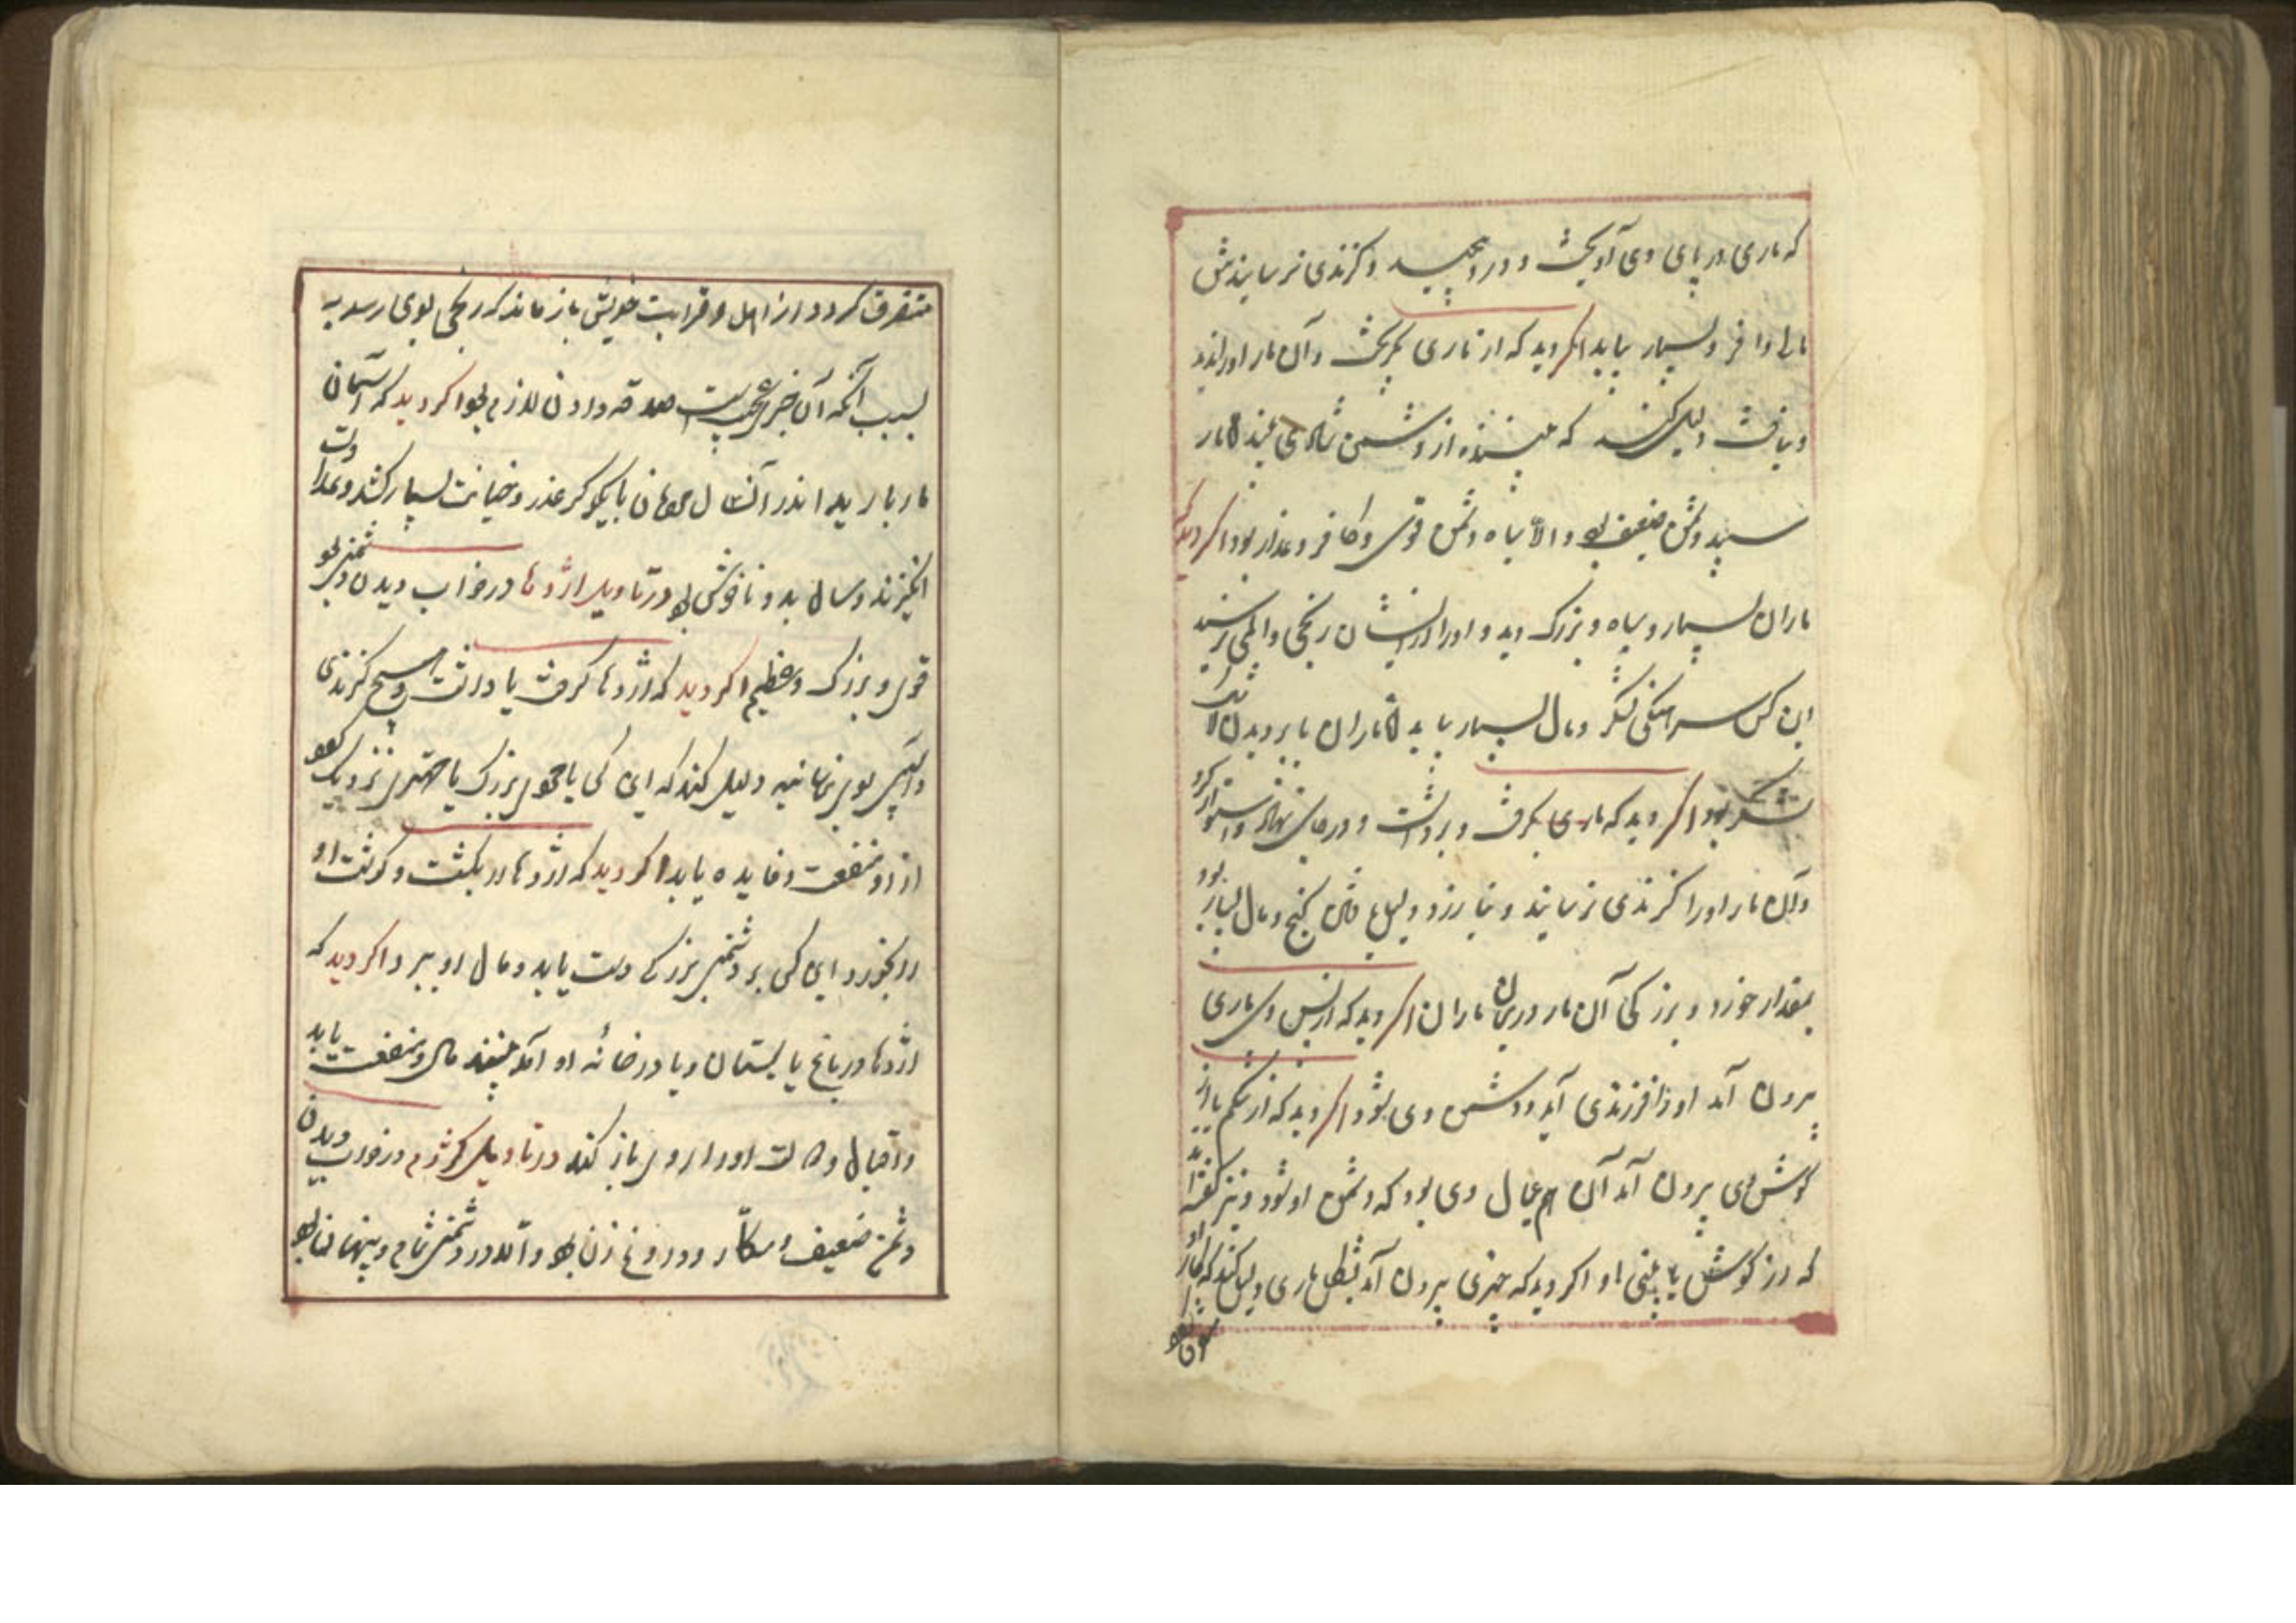 که ماری در پای وی آویخت و در او پیچید و گزندی نرسانیدش
مالی وافر و بسیار بیابد اگر دید که از ماری بگریخت و آن مار او را ندید
و نیافت دلیل کند که بیننده از دشمن
سپید دشمن ضعیف بود و الا سیاه دشمن قوی و کافر و غدار بود اگر دید که
ماران بسیار و سیاه و بزرگ دید و او را از ایشان رنجی و المی نرسید
این کس سرهنگی لشکر و مال بسیار یابد
لشکر بود اگر دید که ماری بگرفت و برداشت و در جای نهاد و استوار کرد
و آن مار او را گزندی نرسانید و نیازرد دلیل یافتن گنج و مال بسیار بود
بمقدار خورد و بزرگی آن مار و دربان ماران اگر دید که از پس وی ماری
برون آمد او را فرزندی آید و دشمن وی شود اگر دید که از شکم یا از
گوش وی برون آمد آن هم عیال وی بود که دشمن او شود و نیز گفته‌اند
که در گوش یا بینی او اگر دید که چیزی برون آمد بشکل ماری دلیل کند که
متفرق گردد از اهل و قرابت خویش باز ماند که رنجی بوی رسد به
سبب آنکه آن خبری عجیب است صدقه دادن لازم بود اگر دید که آسمان
مار بارید اندر آن سال مهان با یکدیگر غدر و خیانت بسیار کنند و عداوت
انگیزند و سال بد و ناخوش بود در تاویل اژدها در خواب دیدن دشمنی بود
قوی و بزرگ و عظیم اگر دید که اژدها گرفت یا داشت و هیچ گزندی
و آسیبی بوی نرسانید دلیل کند که این کس با قوم بزرگ یا مهتری نزدیک بود
از او منفعت و فایده یابد اگر دید که اژدها را بکشت و گوشت او
را بخورد این کس بر دشمنی بزرگ دست یابد و مال او ببرد اگر دید که
اژدها در باغ یا بستان و یا در خانه او آمد بیننده مال و منفعت یابد
و اقبال و دولت او را روی باز کند در تاویل کژدم در خواب دیدن
دشمن ضعیف و مکار و دروغ زن بود و آلا در دشمنی تمام و پنهان